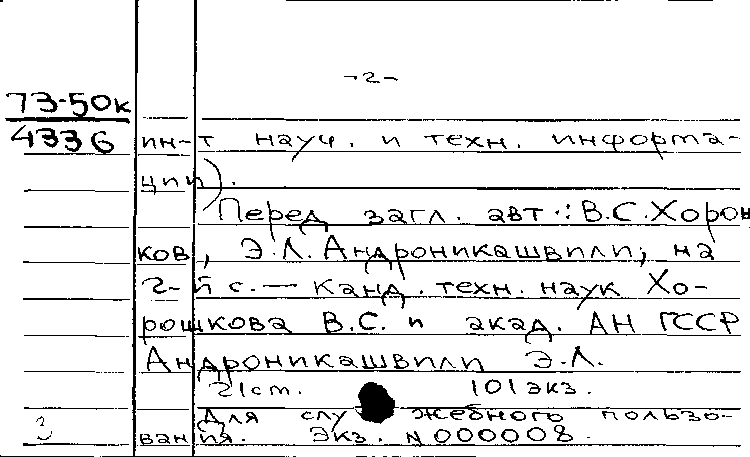 -2-
73-50к
4336
ин-т науч. и техн. информа-
ции).
Перед загл. авт.: В.С.Хорош
ков, Э.Л.Андроникашвили; на
2-й с. — канд. техн. наук Хо-
рошкова В.С. и акад. АН ГССР
Андроникашвили Э.Л.
21 ст. 101 экз.
Для служебного пользо-
вания. Экз. N 000008.